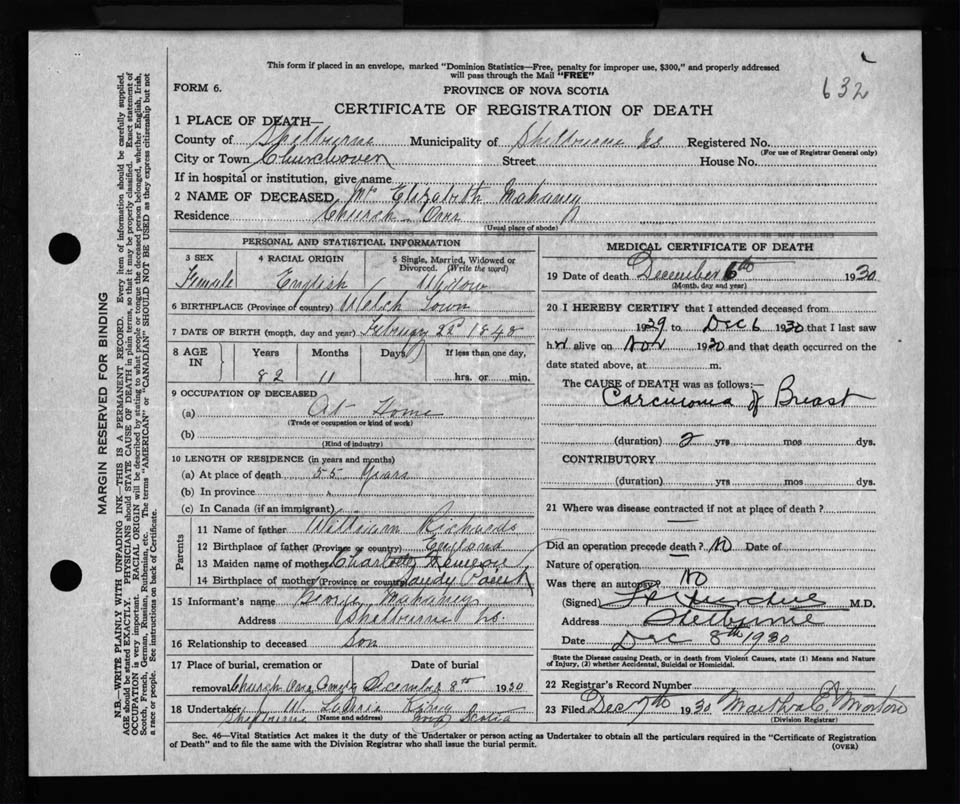 632
This form if placed in an envelope, marked "Dominion Statistics—Free, penalty for improper use, $300," and properly addressed
will pass through the Mail "FREE"
FORM 6.
PROVINCE OF NOVA SCOTIA
CERTIFICATE OF REGISTRATION OF DEATH
1 PLACE OF DEATH—
County of Shelburne Municipality of Shelburne Registered No.
(For use of Registrar General only)
City or Town Churchover Street House No.
If in hospital or institution, give name
2 NAME OF DECEASED Mrs Elizabeth Mahaney
Residence Church Over
(Usual place of abode)
PERSONAL AND STATISTICAL INFORMATION
3 SEX 4 RACIAL ORIGIN 5 Single, Married, Widowed or
Divorced. (Write the word)
Female English Widow
6 BIRTHPLACE (Province or country) Welch Town
7 DATE OF BIRTH (month, day and year) 1848
8 AGE IN Years Months Days If less than one day,
82 11 hrs. or min.
9 OCCUPATION OF DECEASED
(a) At Home
(Trade or occupation or kind of work)
(b)
(Kind of industry)
10 LENGTH OF RESIDENCE (in years and months)
(a) At place of death 55 Years
(b) In province
(c) In Canada (if an immigrant)
Parents
11 Name of father William Richards
12 Birthplace of father (Province or country) England
13 Maiden name of mother Charlotte
14 Birthplace of mother (Province or country)
15 Informant's name George Mahaney
Address Shelburne
16 Relationship to deceased son
17 Place of burial, cremation or Date of burial
removal Church Over December 8th 1930
18 Undertaker W.
Shelburne (Name and address) Nova Scotia
MEDICAL CERTIFICATE OF DEATH
19 Date of death December 6th 1930
(Month, day and year)
20 I HEREBY CERTIFY that I attended deceased from
1929 to Dec 6 1930 that I last saw
her alive on Nov 1930 and that death occurred on the
date stated above, at m.
The CAUSE of DEATH was as follows:—
Carcinoma of Breast
(duration) 2 yrs mos dys.
CONTRIBUTORY
(duration) yrs mos dys.
21 Where was disease contracted if not at place of death?
Did an operation precede death? No Date of
Nature of operation
Was there an autopsy No
(Signed) M.D.
Address Shelburne
Date Dec 8th 1930
State the Disease causing Death, or in death from Violent Causes, state (1) Means and Nature
of Injury, (2) whether Accidental, Suicidal or Homicidal.
22 Registrar's Record Number
23 Filed Dec 7th 1930 Martha E Morton
(Division Registrar)
Sec. 46—Vital Statistics Act makes it the duty of the Undertaker or person acting as Undertaker to obtain all the particulars required in the "Certificate of Registration
of Death" and to file the same with the Division Registrar who shall issue the burial permit.
(OVER)
MARGIN RESERVED FOR BINDING
N.B. WRITE PLAINLY WITH UNFADING INK—THIS IS A PERMANENT RECORD. Every item of information should be carefully supplied.
AGE should be stated EXACTLY. PHYSICIANS should STATE CAUSE OF DEATH in plain terms, so that it may be properly classified. Exact statement of
OCCUPATION is very important. RACIAL ORIGIN will be described by stating to what people or tongue the deceased person belonged, whether English, Irish,
Scotch, French, German, Russian, Ruthenian, etc. The terms "AMERICAN" or "CANADIAN" SHOULD NOT BE USED as they express citizenship but not
a race or people. See instructions on back of Certificate.